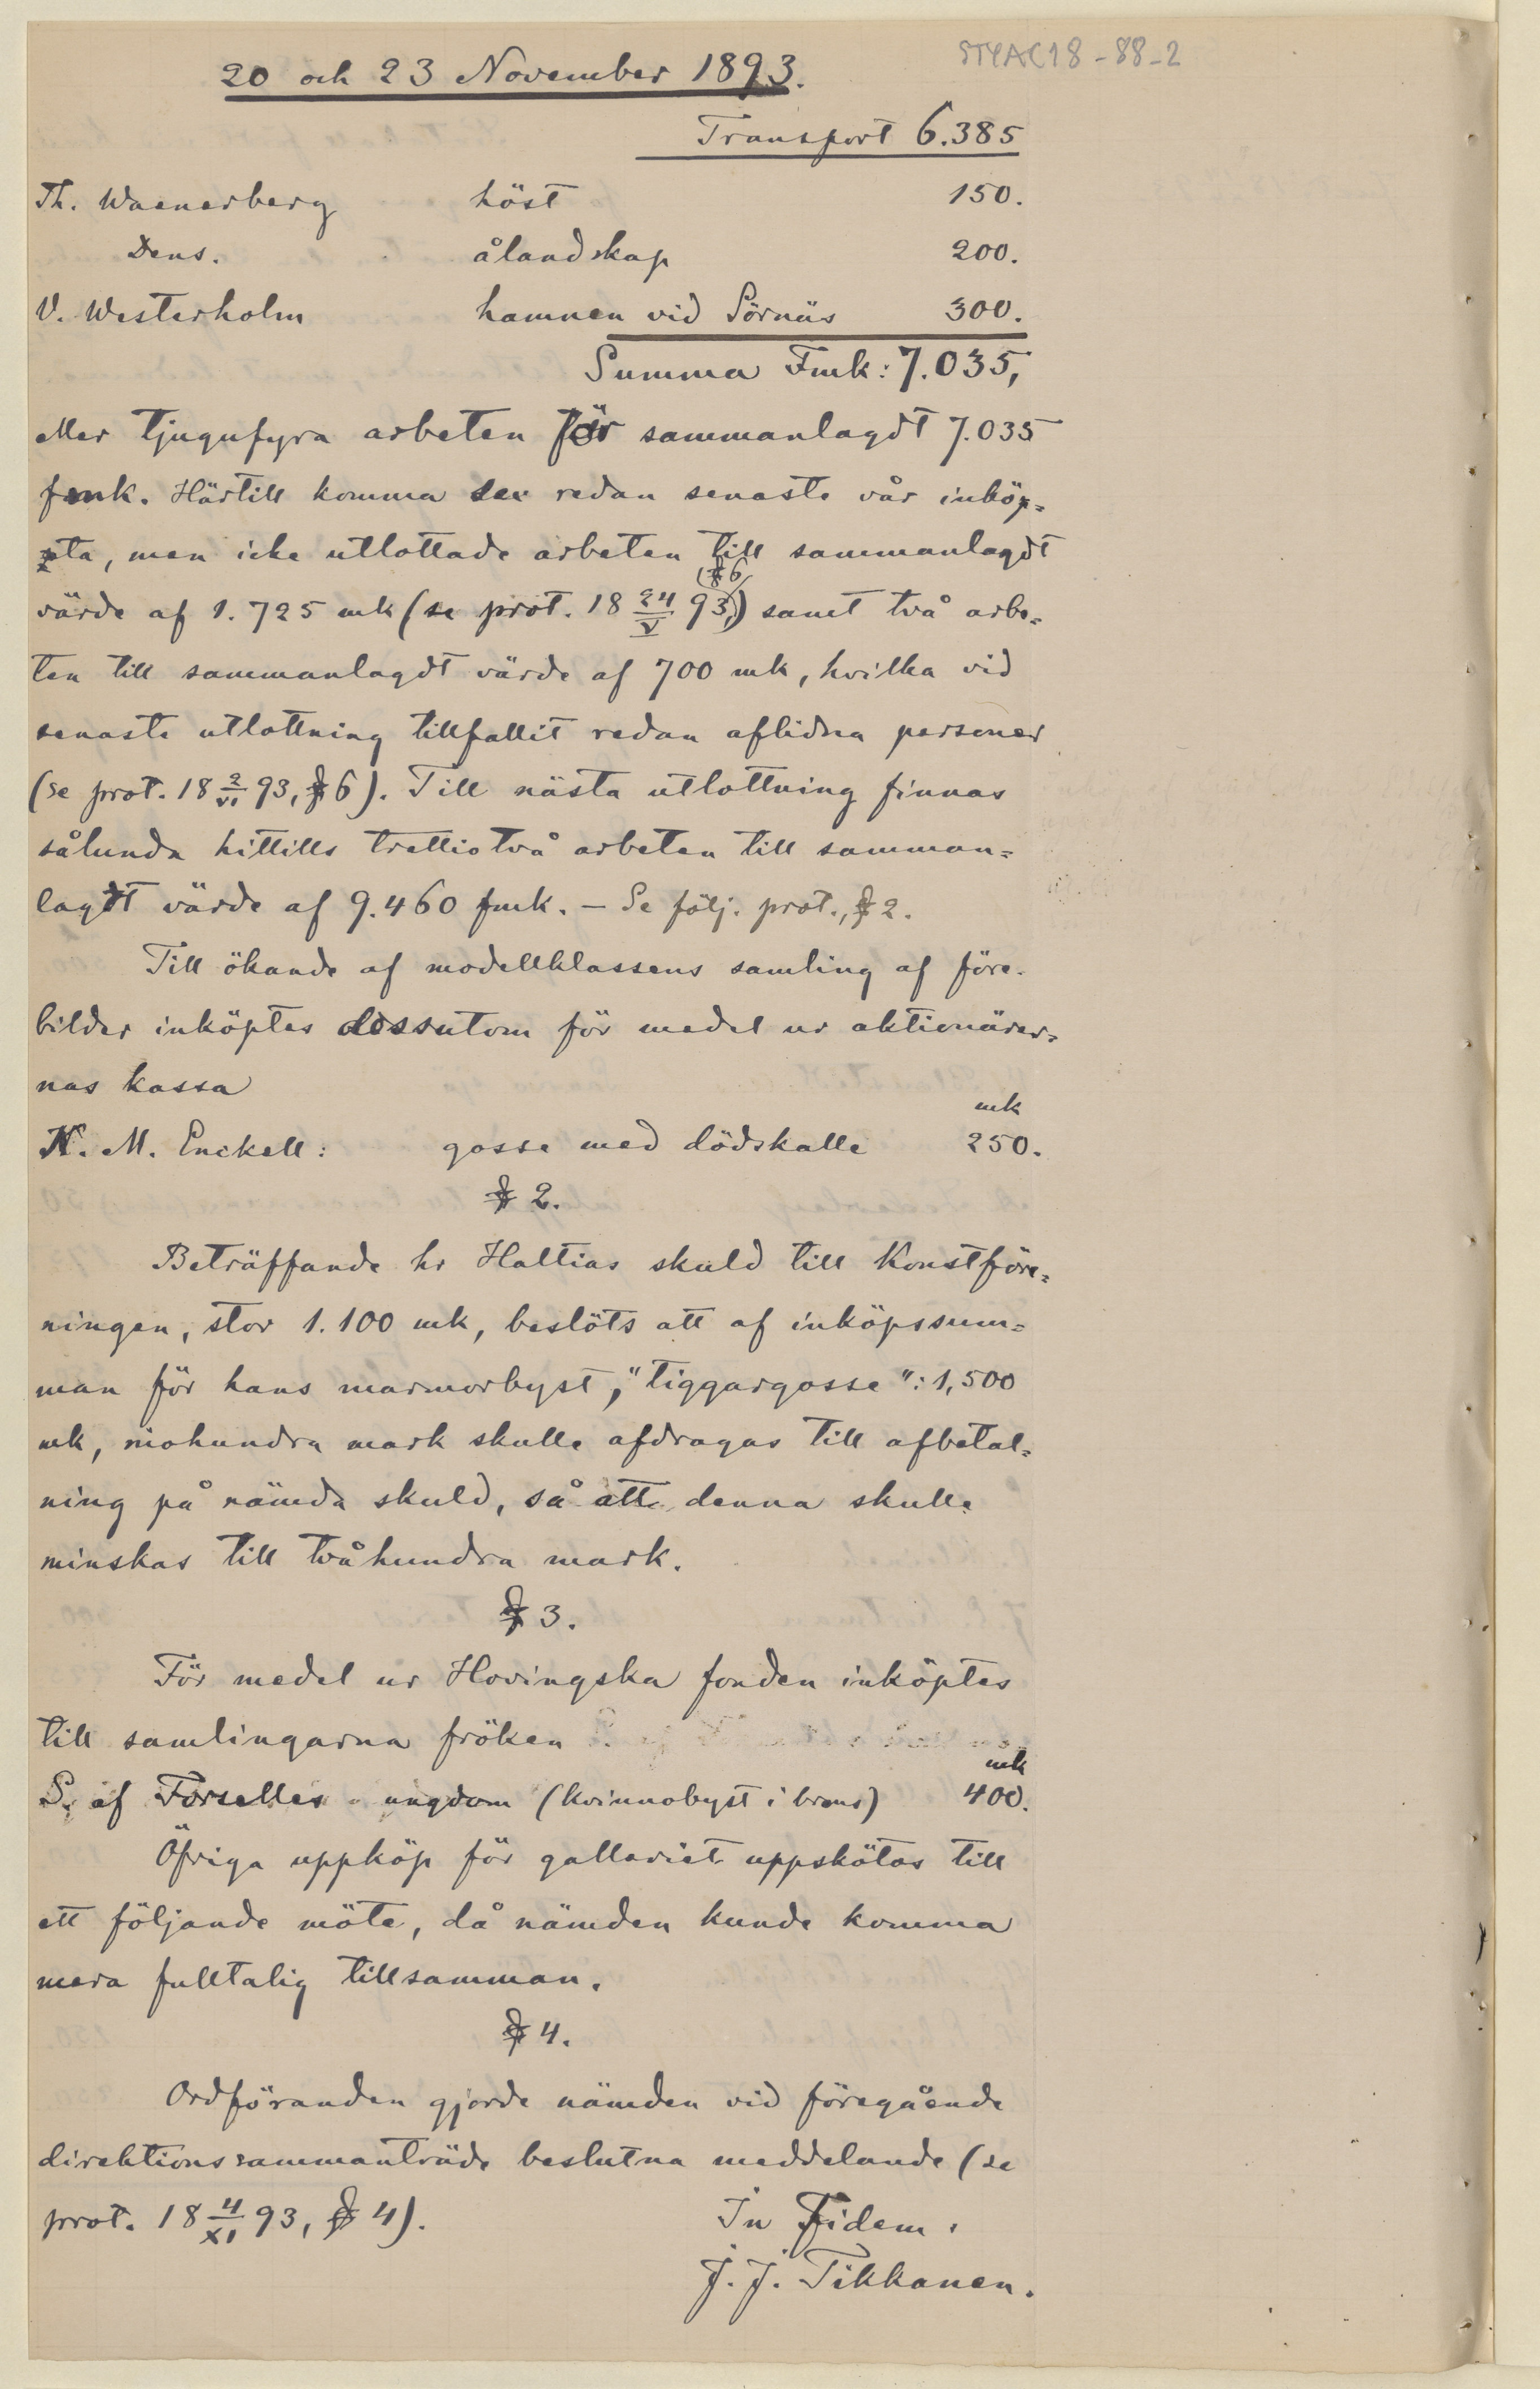 STYAC18-88-2
20 och 23 November 1893.
Transport 6.385
Th. Waenerberg höst 150.
Dens. ålandskap 200.
V. Westerholm hamnen vid Sörnäs 300.
Summa Fmk: 7.035,
eller tjugufyra arbeten för sammanlagdt 7.035
fmk. Härtill komma sex redan senaste vår inköp=
pta, men icke utlottade arbeten till sammanlagdt
värde af 1.725 mk (se prot. 18 24/V 93, § 6) samt två arbe=
ten till sammanlagdt värde af 700 mk, hvilka vid
senaste utlottning tillfallit redan aflidna personer
(se prot. 18 2/VI 93, § 6). Till nästa utlottning finnas
sålunda hittills trettiotvå arbeten till samman=
lagdt värde af 9.460 fmk. – Se följ. prot., § 2.
Till ökande af modellklassens samling af före-
bilder inköptes dessutom för medel ur aktionärer=
nas kassa
mk
K. M. Enckell: gosse med dödskalle 250.
§ 2.
Beträffande hr Haltias skuld till Konstföre=
ningen, stor 1.100 mk, beslöts att af inköpssum=
man för hans marmorbyst, "tiggargosse": 1,500
mk, niohundra mark skulle afdragas till afbetal=
ning på nämda skuld, så att denna skulle
minskas till tvåhundra mark.
§ 3.
För medel ur Hovingska fonden inköptes
till samlingarna fröken
mk
S. af Forselles ungdom (kvinnobyst i brons) 400.
Öfriga uppköp för galleriet uppskötos till
ett följande möte, då nämden kunde komma
mera fulltalig tillsamman.
§ 4.
Ordföranden gjorde nämden vid föregående
direktionssammanträde beslutna meddelande (se
prot. 18 4/XI 93, § 4).
In Fidem:
J. J. Tikkanen.